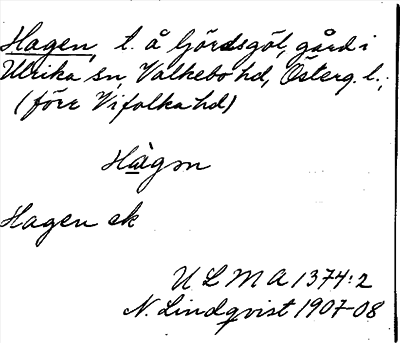 Hagen, t. å Gördsgöl, gård i
Ulrika sn, Valkebo hd, Österg. l.,
(förr Vifolka hd)
Hàgən
Hagen ek
U L M A 1374:2
N. Lindqvist 1907-08